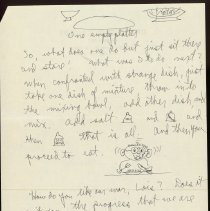 One empty platter
So, what does one do but just sit there
and stare. What was to do next?
When confronted with strange dish, just
take one dish of mixture thrown into
the mixing bowl, add other dish and
mix. Add salt and and
then that is all — and then you
proceed to eat.
How do you like our war, Lois? Does it
the progress that we are